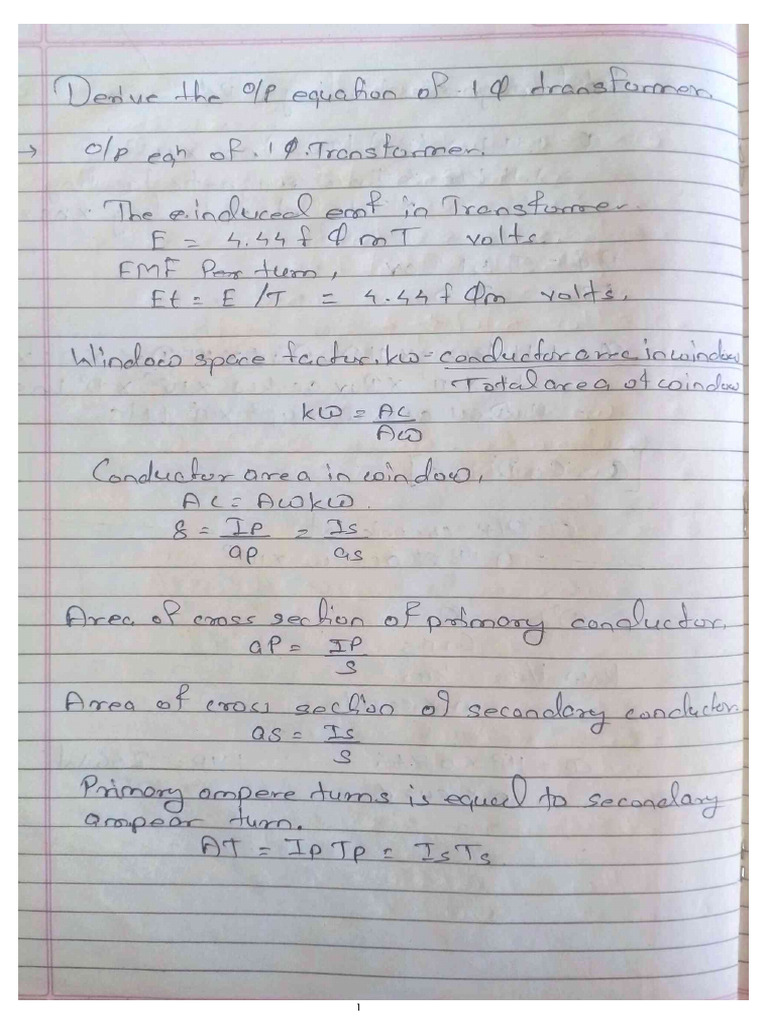 Derive the o/p equation of 1 Φ transformer.
→ o/p eqn of 1 Φ. Transformer.
The e. induced emf in Transformer.
E = 4.44 f Φ m T volts.
EMF Per turn,
Et = E / T = 4.44 f Φm volts.
Window space factor. kw = conductor area in window
Total area of window
kw = Ac
Aw
Conductor area in window,
Ac = Aw kw.
δ = Ip = Is
ap as
Area of cross section of primary conductor.
aP = IP
δ
Area of cross section of secondary conductor.
as = Is
δ
Primary ampere turns is equal to secondary
ampear turn.
AT = Ip Tp = Is Ts
1